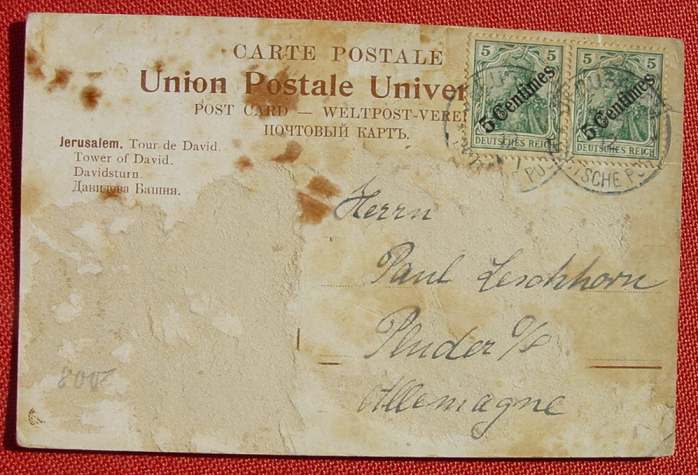 CARTE POSTALE
Union Postale Univer
POST CARD — WELTPOST-VEREI
ПОЧТОВЫЙ КАРТЪ.
Jerusalem. Tour de David.
Tower of David.
Davidsturn.
Данидова Башня.
5 5
5 Centimes
DEUTSCHES REICH
5 5
5 Centimes
DEUTSCHES REICH
TSCHE PO
Herrn
Paul Leschhorn
Pluder o/s
Allemagne
800